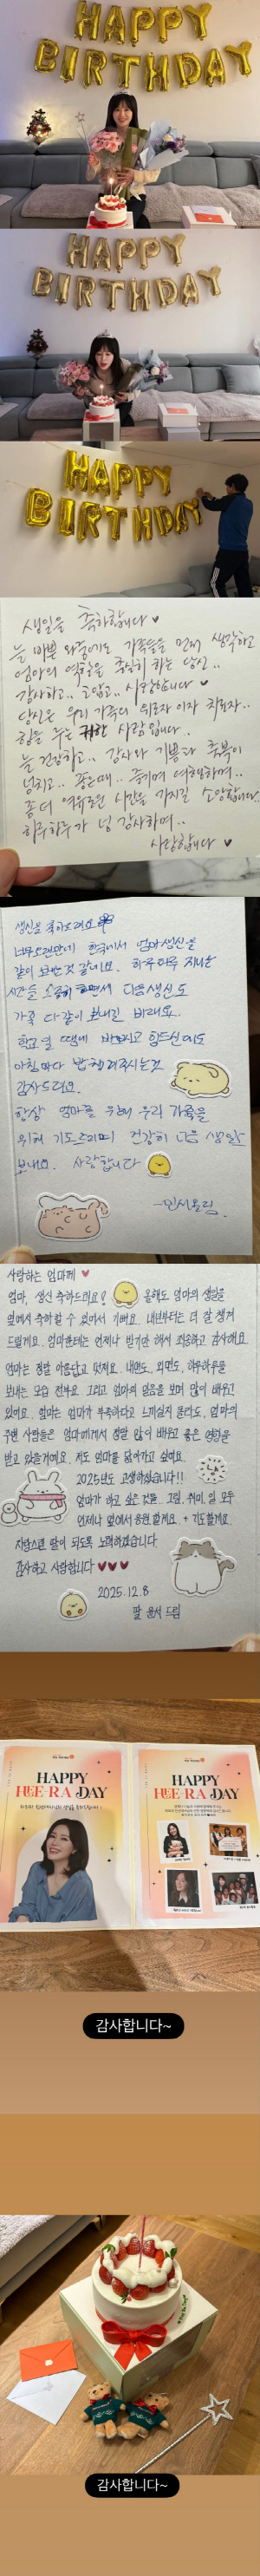 HAPPY
BIRTHDAY
HAPPY
BIRTHDAY
HAPPY
BIRTHDAY
생일을 축하합니다 ♥
늘 바쁜 와중에도 가족들을 먼저 생각하고
엄마의 역할을 충실히 하는 당신..
감사하고.. 고맙고.. 사랑합니다 ♥
당신은 우리 가족의 위로자 이자 치료자..
힘을 주는 귀한 사람 입니다..
늘 건강하고.. 감사와 기쁨과 축복이
넘치고.. 즐기며 여행하며..
좀 더 여유로운 시간을 가지길 소망합니다..
하루하루가 넘 감사하며..
사랑합니다 ♥
생신을 축하드려요
너무 오랜만에 한국에서 엄마 생신을
같이 보낸 것 같네요. 하루하루 지나는
시간들 소중히 하면서 다음 생신도
가족 다같이 보내길 바래요.
학교 일 땜에 바쁘시고 힘드신데도
아침마다 밥 챙겨주시는 것
감사드려요.
항상 엄마를 위해 우리 가족을
위해 기도드리며 건강히 다음 생일도
보내요. 사랑합니다
사랑하는 엄마께 ♥
엄마, 생신 축하드려요! 올해도 엄마의 생일을
옆에서 축하할 수 있어서 기뻐요. 내년부터는 더 잘 챙겨
드릴게요. 엄마한테는 언제나 받기만 해서 죄송하고 감사해요.
엄마는 정말 아름답고 멋져요. 내면도, 외면도, 하루하루를
보내는 모습 전부요. 그리고 엄마의 믿음을 보며 많이 배우고
있어요. 엄마는 엄마가 부족하다고 느끼실지 몰라도, 엄마의
주변 사람들은 엄마에게서 정말 많이 배우고 좋은 영향을
받고 있을거예요. 저도 엄마를 닮아가고 싶어요.
2025년도 고생하셨습니다!!
엄마가 하고 싶은 것들.. 그림, 취미, 일 모두
언제나 옆에서 응원할게요. + 기도할게요.
자랑스런 딸이 되도록 노력하겠습니다.
감사하고 사랑합니다 ♥♥♥
2025.12.8
딸 윤서 드림
HAPPY
HEE-RA DAY
HAPPY
HEE-RA DAY
감사합니다~
감사합니다~